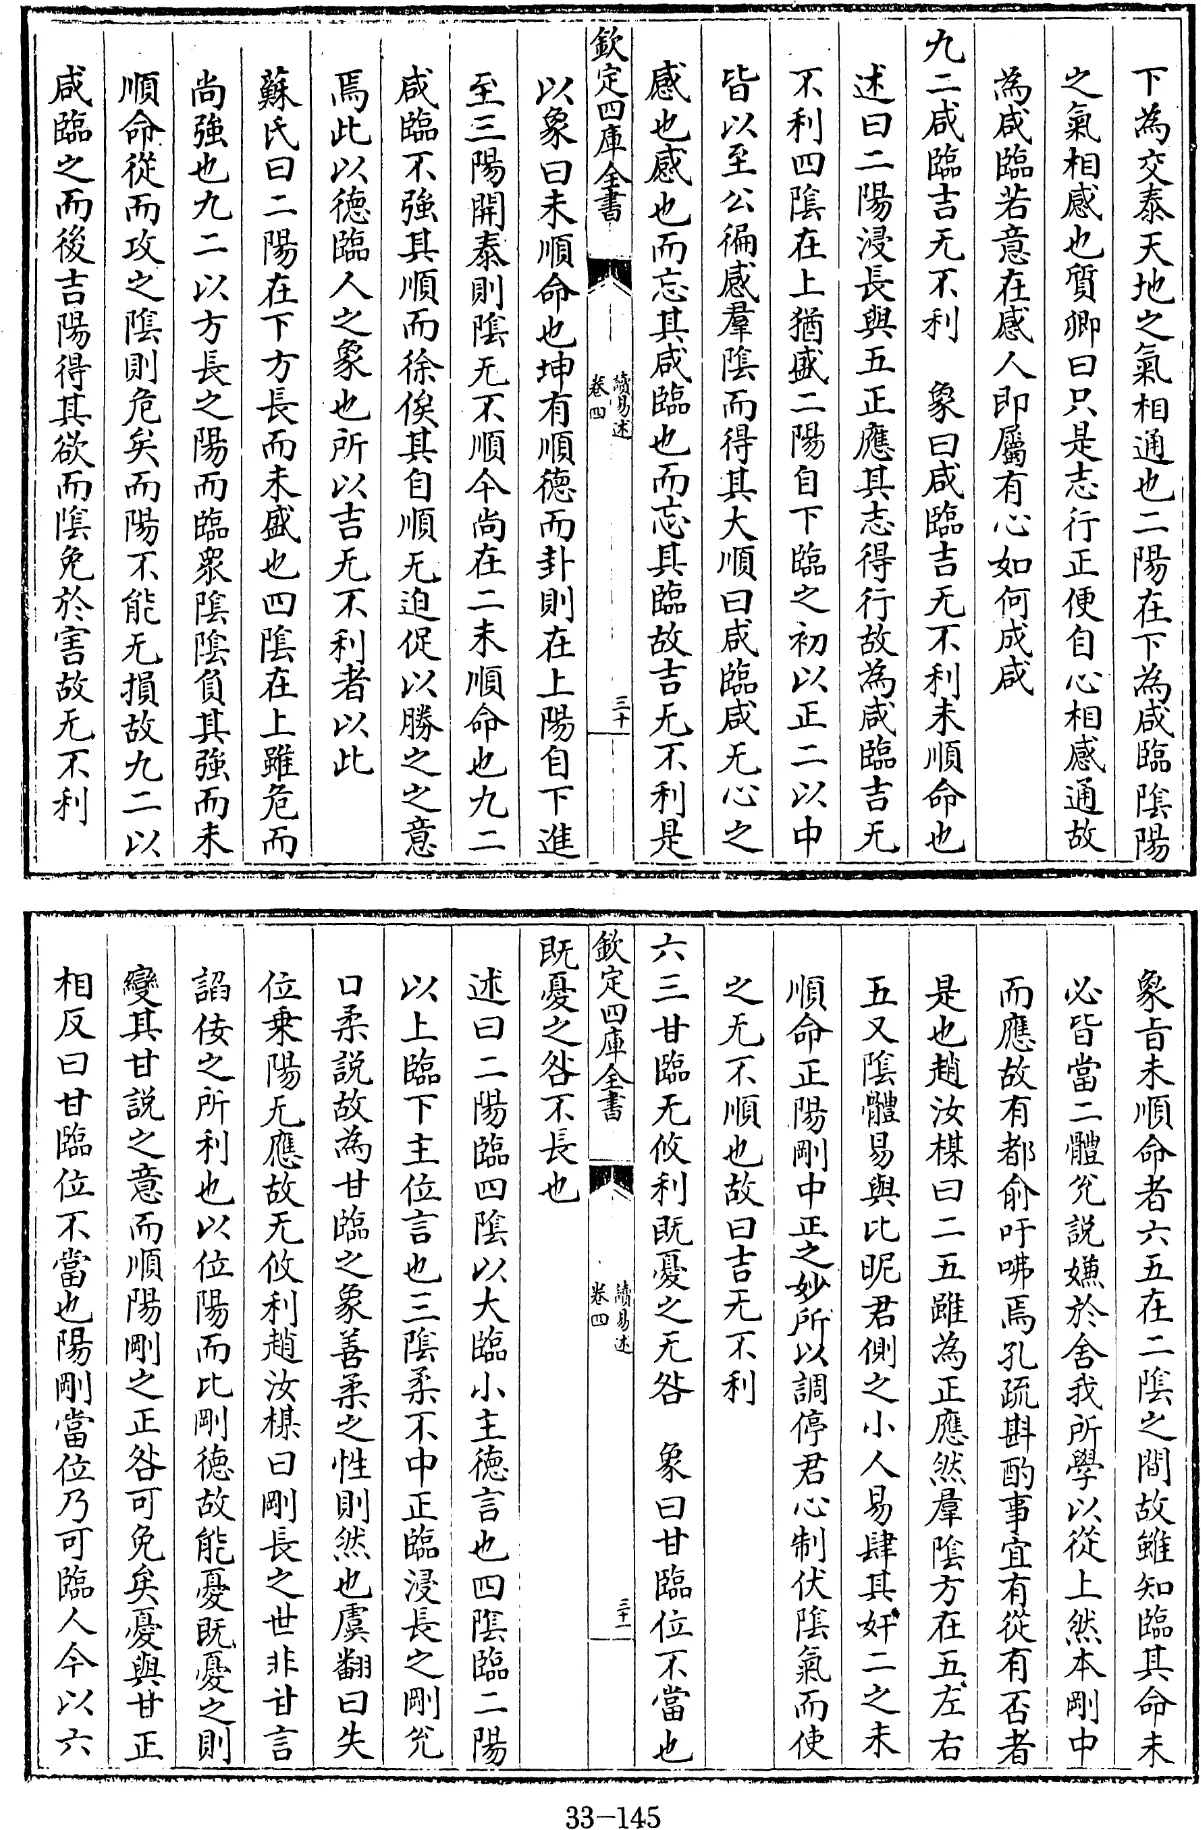 下為交泰天地之氣相通也二陽在下為咸臨陰陽
之氣相感也質卿曰只是志行正便自心相感通故
為咸臨若意在感人即屬有心如何成咸
九二咸臨吉无不利　象曰咸臨吉无不利未順命也
述曰二陽浸長與五正應其志得行故為咸臨吉无
不利四陰在上猶盛二陽自下臨之初以正二以中
皆以至公徧感羣陰而得其大順曰咸臨咸无心之
感也感也而忘其咸臨也而忘其臨故吉无不利是
欽定四庫全書　讀易述卷四　三十
以象曰未順命也坤有順德而卦則在上陽自下進
至三陽開泰則陰无不順今尚在二未順命也九二
咸臨不強其順而徐俟其自順无迫促以勝之之意
焉此以德臨人之象也所以吉无不利者以此
蘇氏曰二陽在下方長而未盛也四陰在上雖危而
尚強也九二以方長之陽而臨衆陰陰負其強而未
順命從而攻之陰則危矣而陽不能无損故九二以
咸臨之而後吉陽得其欲而陰免於害故无不利
象旨未順命者六五在二陰之間故雖知臨其命未
必皆當二體兌說嫌於舍我所學以從上然本剛中
而應故有都俞吁咈焉孔疏斟酌事宜有從有否者
是也趙汝楳曰二五雖為正應然羣陰方在五左右
五又陰體易與比昵君側之小人易肆其奸二之未
順命正陽剛中正之妙所以調停君心制伏陰氣而使
之无不順也故曰吉无不利
六三甘臨无攸利既憂之无咎　象曰甘臨位不當也
欽定四庫全書　讀易述卷四　三十一
既憂之咎不長也
述曰二陽臨四陰以大臨小主德言也四陰臨二陽
以上臨下主位言也三陰柔不中正臨浸長之剛兌
口柔說故為甘臨之象善柔之性則然也虞翻曰失
位乗陽无應故无攸利趙汝楳曰剛長之世非甘言
諂佞之所利也以位陽而比剛德故能憂既憂之則
變其甘說之意而順陽剛之正咎可免矣憂與甘正
相反曰甘臨位不當也陽剛當位乃可臨人今以六
33-145